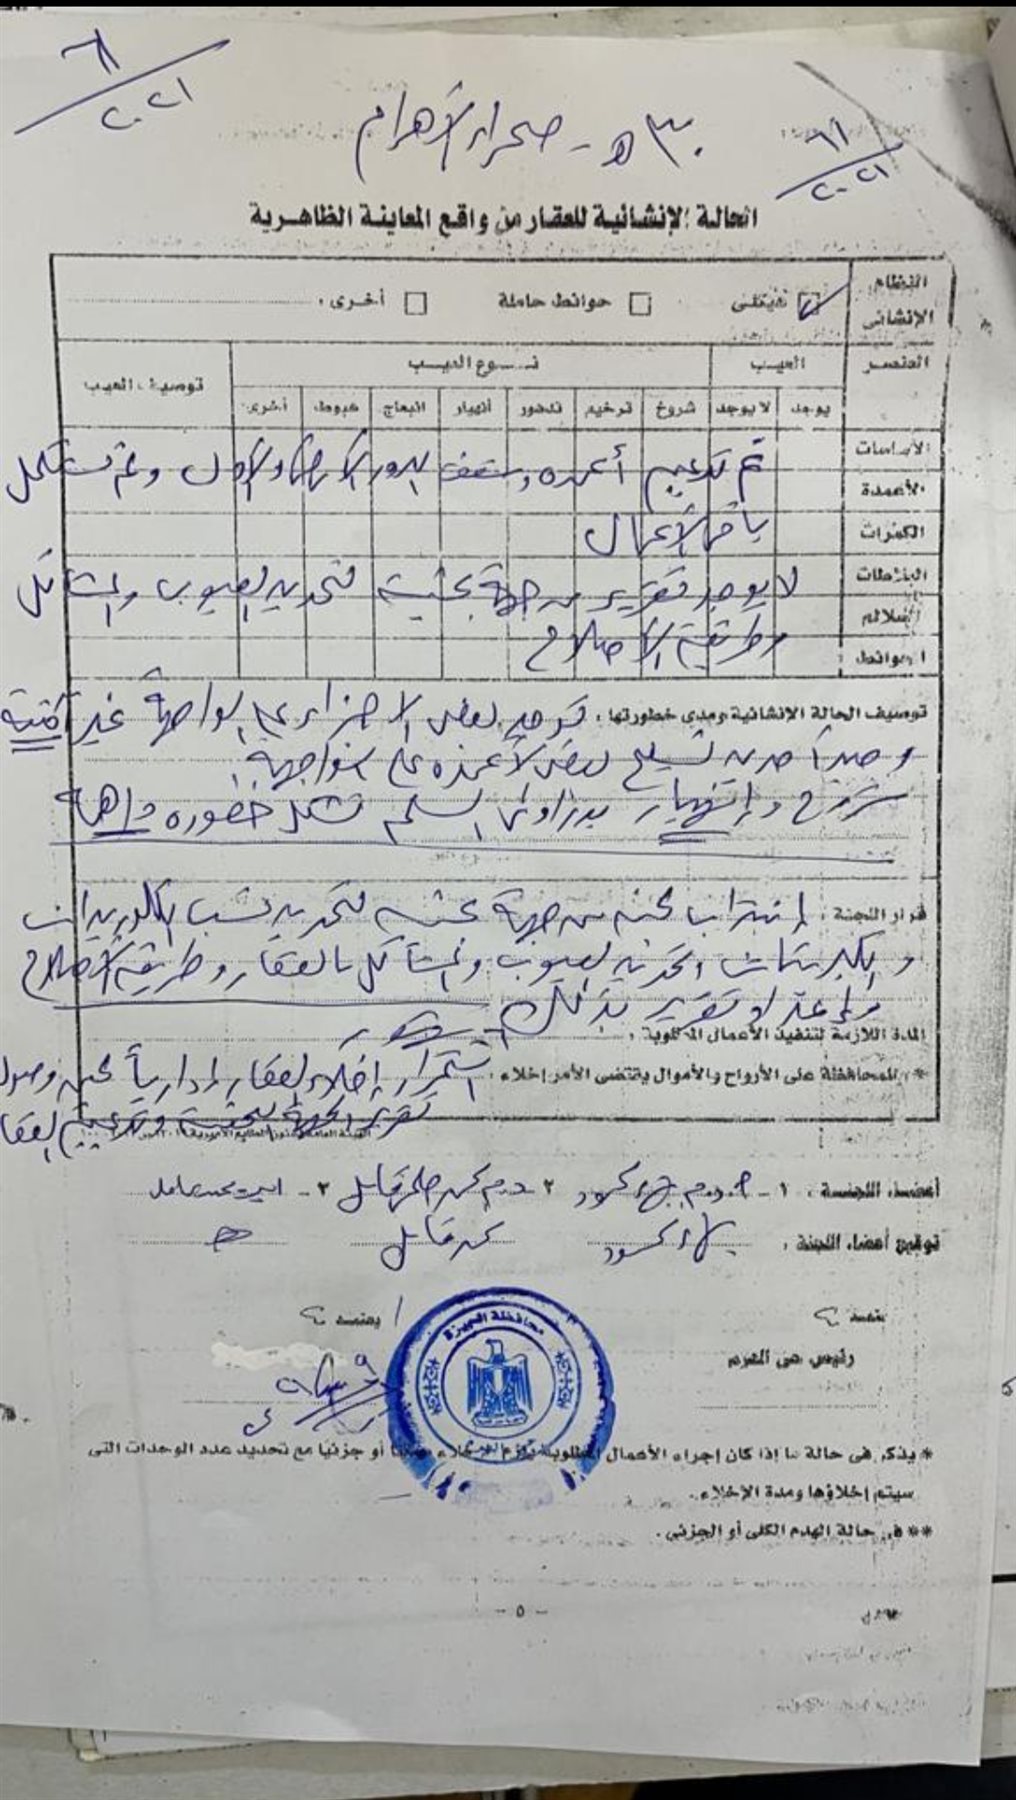 ٦١
٢٠٢١
٣٠ هـ - صحراء الأهرام
٦١
٢٠٢١
الحالة الإنشائية للعقار من واقع المعاينة الظاهرية
النظام الإنشائى
هيكلى
حوائط حاملة
أخرى :
العنصر
العيب
نوع العيب
توصيف العيب
يوجد
لا يوجد
شروخ
ترخيم
تدهور
انهيار
انبعاج
هبوط
أخرى
الأساسات
الأعمدة
الكمرات
البلاطات
السلالم
الحوائط
تم تدعيم أعمدة وسقف الدور الأرضى والأول ولم تستكمل
باقى الأعمال
لا يوجد تقرير من جهة بحثية لتحديد العيوب والمشاكل
وطريقة الإصلاح
توصيف الحالة الإنشائية ومدى خطورتها : توجد بعض الأجزاء بالواجهة غير آمنة
وصدأ حديد تسليح بعض الأعمدة بالواجهة
شروخ وانهيار السلم تشكل خطورة داهمة
قرار اللجنة : انتداب لجنة من جهة بحثية لتحديد نسب الكلوريدات
والكبريتات وتحديد العيوب والمشاكل بالعقار وطريقة الإصلاح
وإعداد تقرير بذلك
المدة اللازمة لتنفيذ الأعمال المطلوبة :
* للمحافظة على الأرواح والأموال يقتضى الأمر إخلاء : استمرار إخلاء العقار إداريا لحين وصول
تقرير الجهة البحثية وتدعيم العقار
أعضاء اللجنة : ١ - ٢ - ٣ -
توقيع أعضاء اللجنة :
يعتمد
يعتمد
رئيس حى الهرم
محافظة الجيزة
* يذكر فى حالة ما إذا كان إجراء الأعمال المطلوبة يلزم الإخلاء أو جزئيا مع تحديد عدد الوحدات التى
سيتم إخلاؤها ومدة الإخلاء .
** فى حالة الهدم الكلى أو الجزئى .
- ٥ -